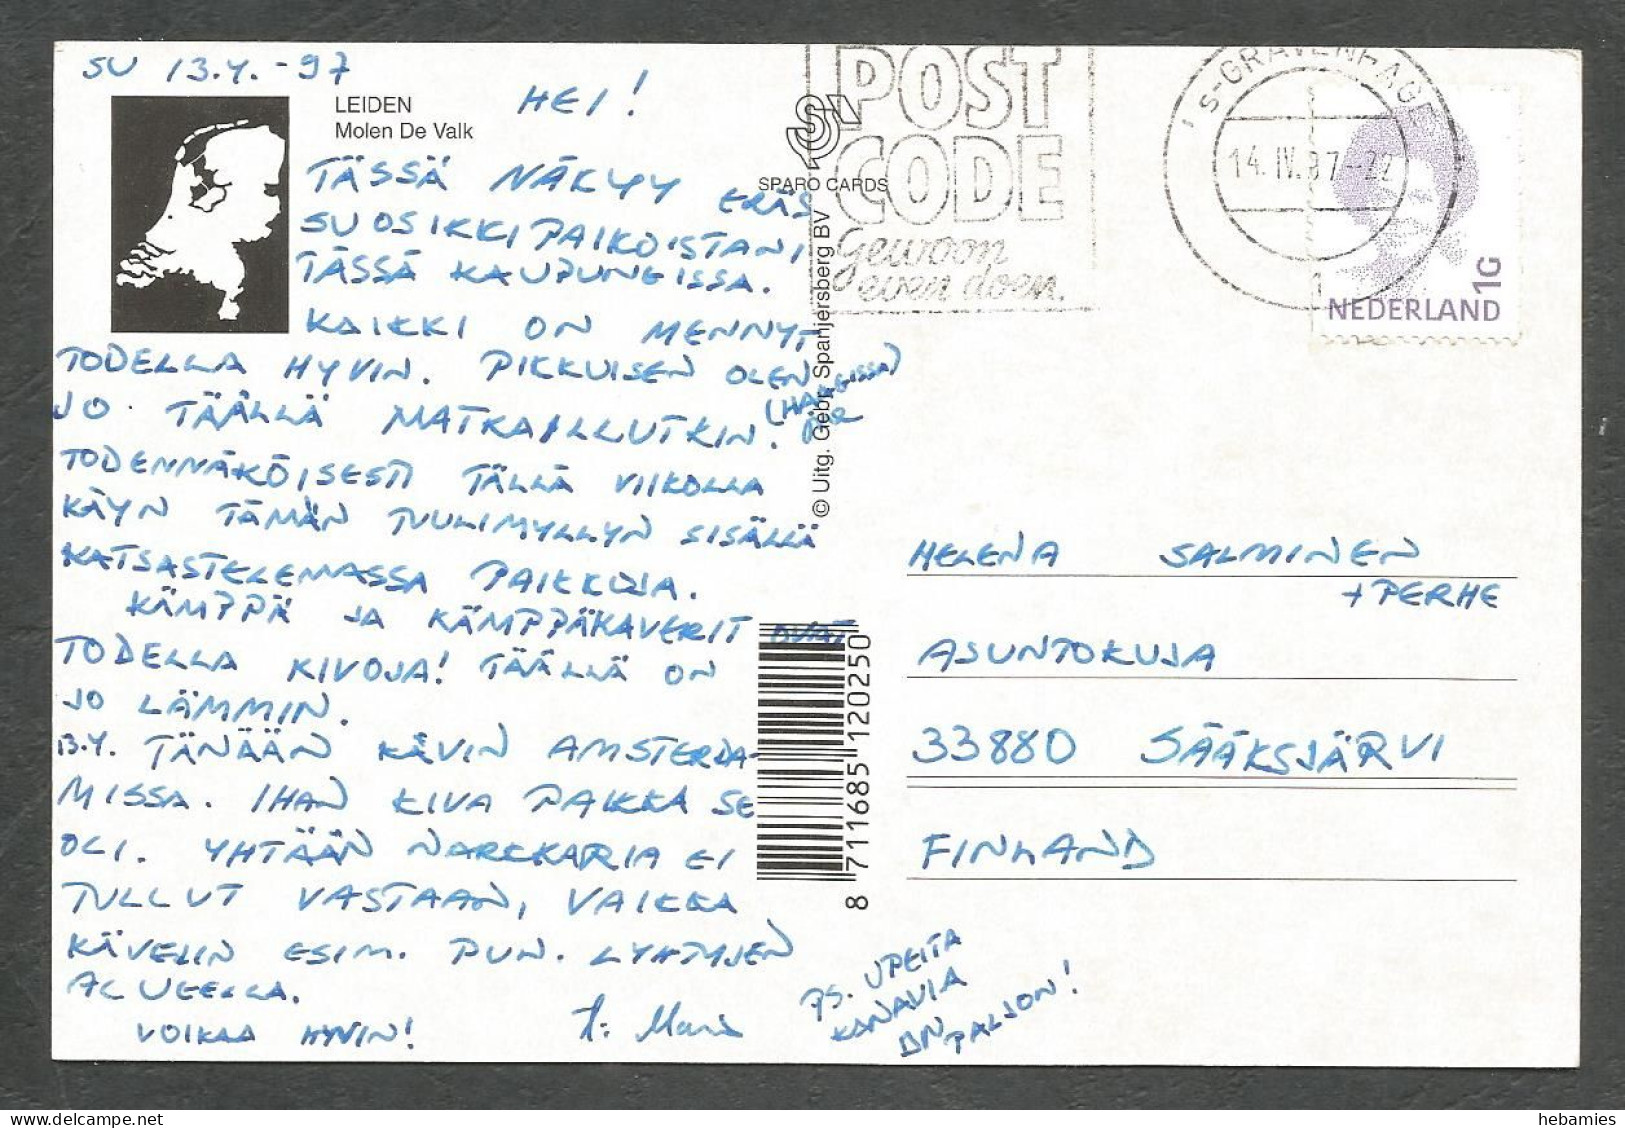 SU 13.4.-97
HEI!
LEIDEN
Molen De Valk
TÄSSÄ NÄKYY ERÄS
SUOSIKKIPAIKOISTANI
TÄSSÄ KAUPUNGISSA.
KAIKKI ON MENNYT
TODELLA HYVIN. PIKKUISEN OLEN
JO TÄÄLLÄ MATKAILLUTKIN. (HAAGISSA)
TODENNÄKÖISESTI TÄLLÄ VIIKOLLA
KÄYN TÄMÄN TUULIMYLLYN SISÄLLÄ
KATSASTELEMASSA PAIKKOJA.
KÄMPPÄ JA KÄMPPÄKAVERIT OVAT
TODELLA KIVOJA! TÄÄLLÄ ON
JO LÄMMIN.
13.4. TÄNÄÄN KÄVIN AMSTERDA-
MISSA. IHAN KIVA PAIKKA SE
OLI. YHTÄÄN NARKKARIA EI
TULLUT VASTAAN, VAIKKA
KÄVELIN ESIM. PUN. LYHTYJEN
ALUEELLA.
VOIKAA HYVIN!
PS. UPEITA
KANAVIA
ON PALJON!
SPARO CARDS
© Uitg. Gebr. Spanjersberg BV
8 711685 120250
POST
CODE
Gewoon
even doen.
's-GRAVENHAGE
14.IV.97-22
1
1G
NEDERLAND
HELENA SALMINEN
+ PERHE
ASUNTOKUJA
33880 SÄÄKSJÄRVI
FINLAND
hebamies